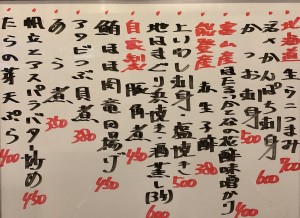 北海道 生うにつまみ 700
かんぱち刺身 600
かつお刺身
富山産 ほたるいか菜の花酢味噌がけ
能登産 赤生子酢 380
上いわし刺身・塩焼き 500
地はまぐり 焼き・酒蒸し 600
自家製 豚角煮 450
鮪ほほ肉竜田揚げ 450
アワビつぶ貝煮 380
あら煮 350
帆立とアスパラバター炒め 450
たらの芽天ぷら 400